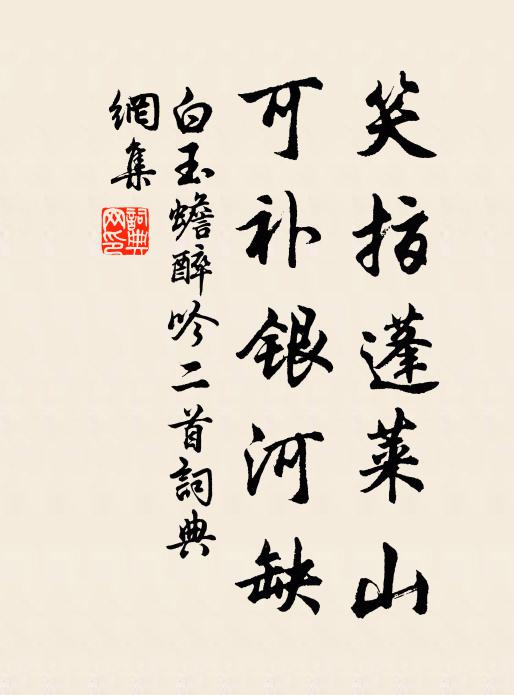 笑指蓬莱山
可补银河缺
白玉蟾醉吟二首詞典
網集
詞典
网印